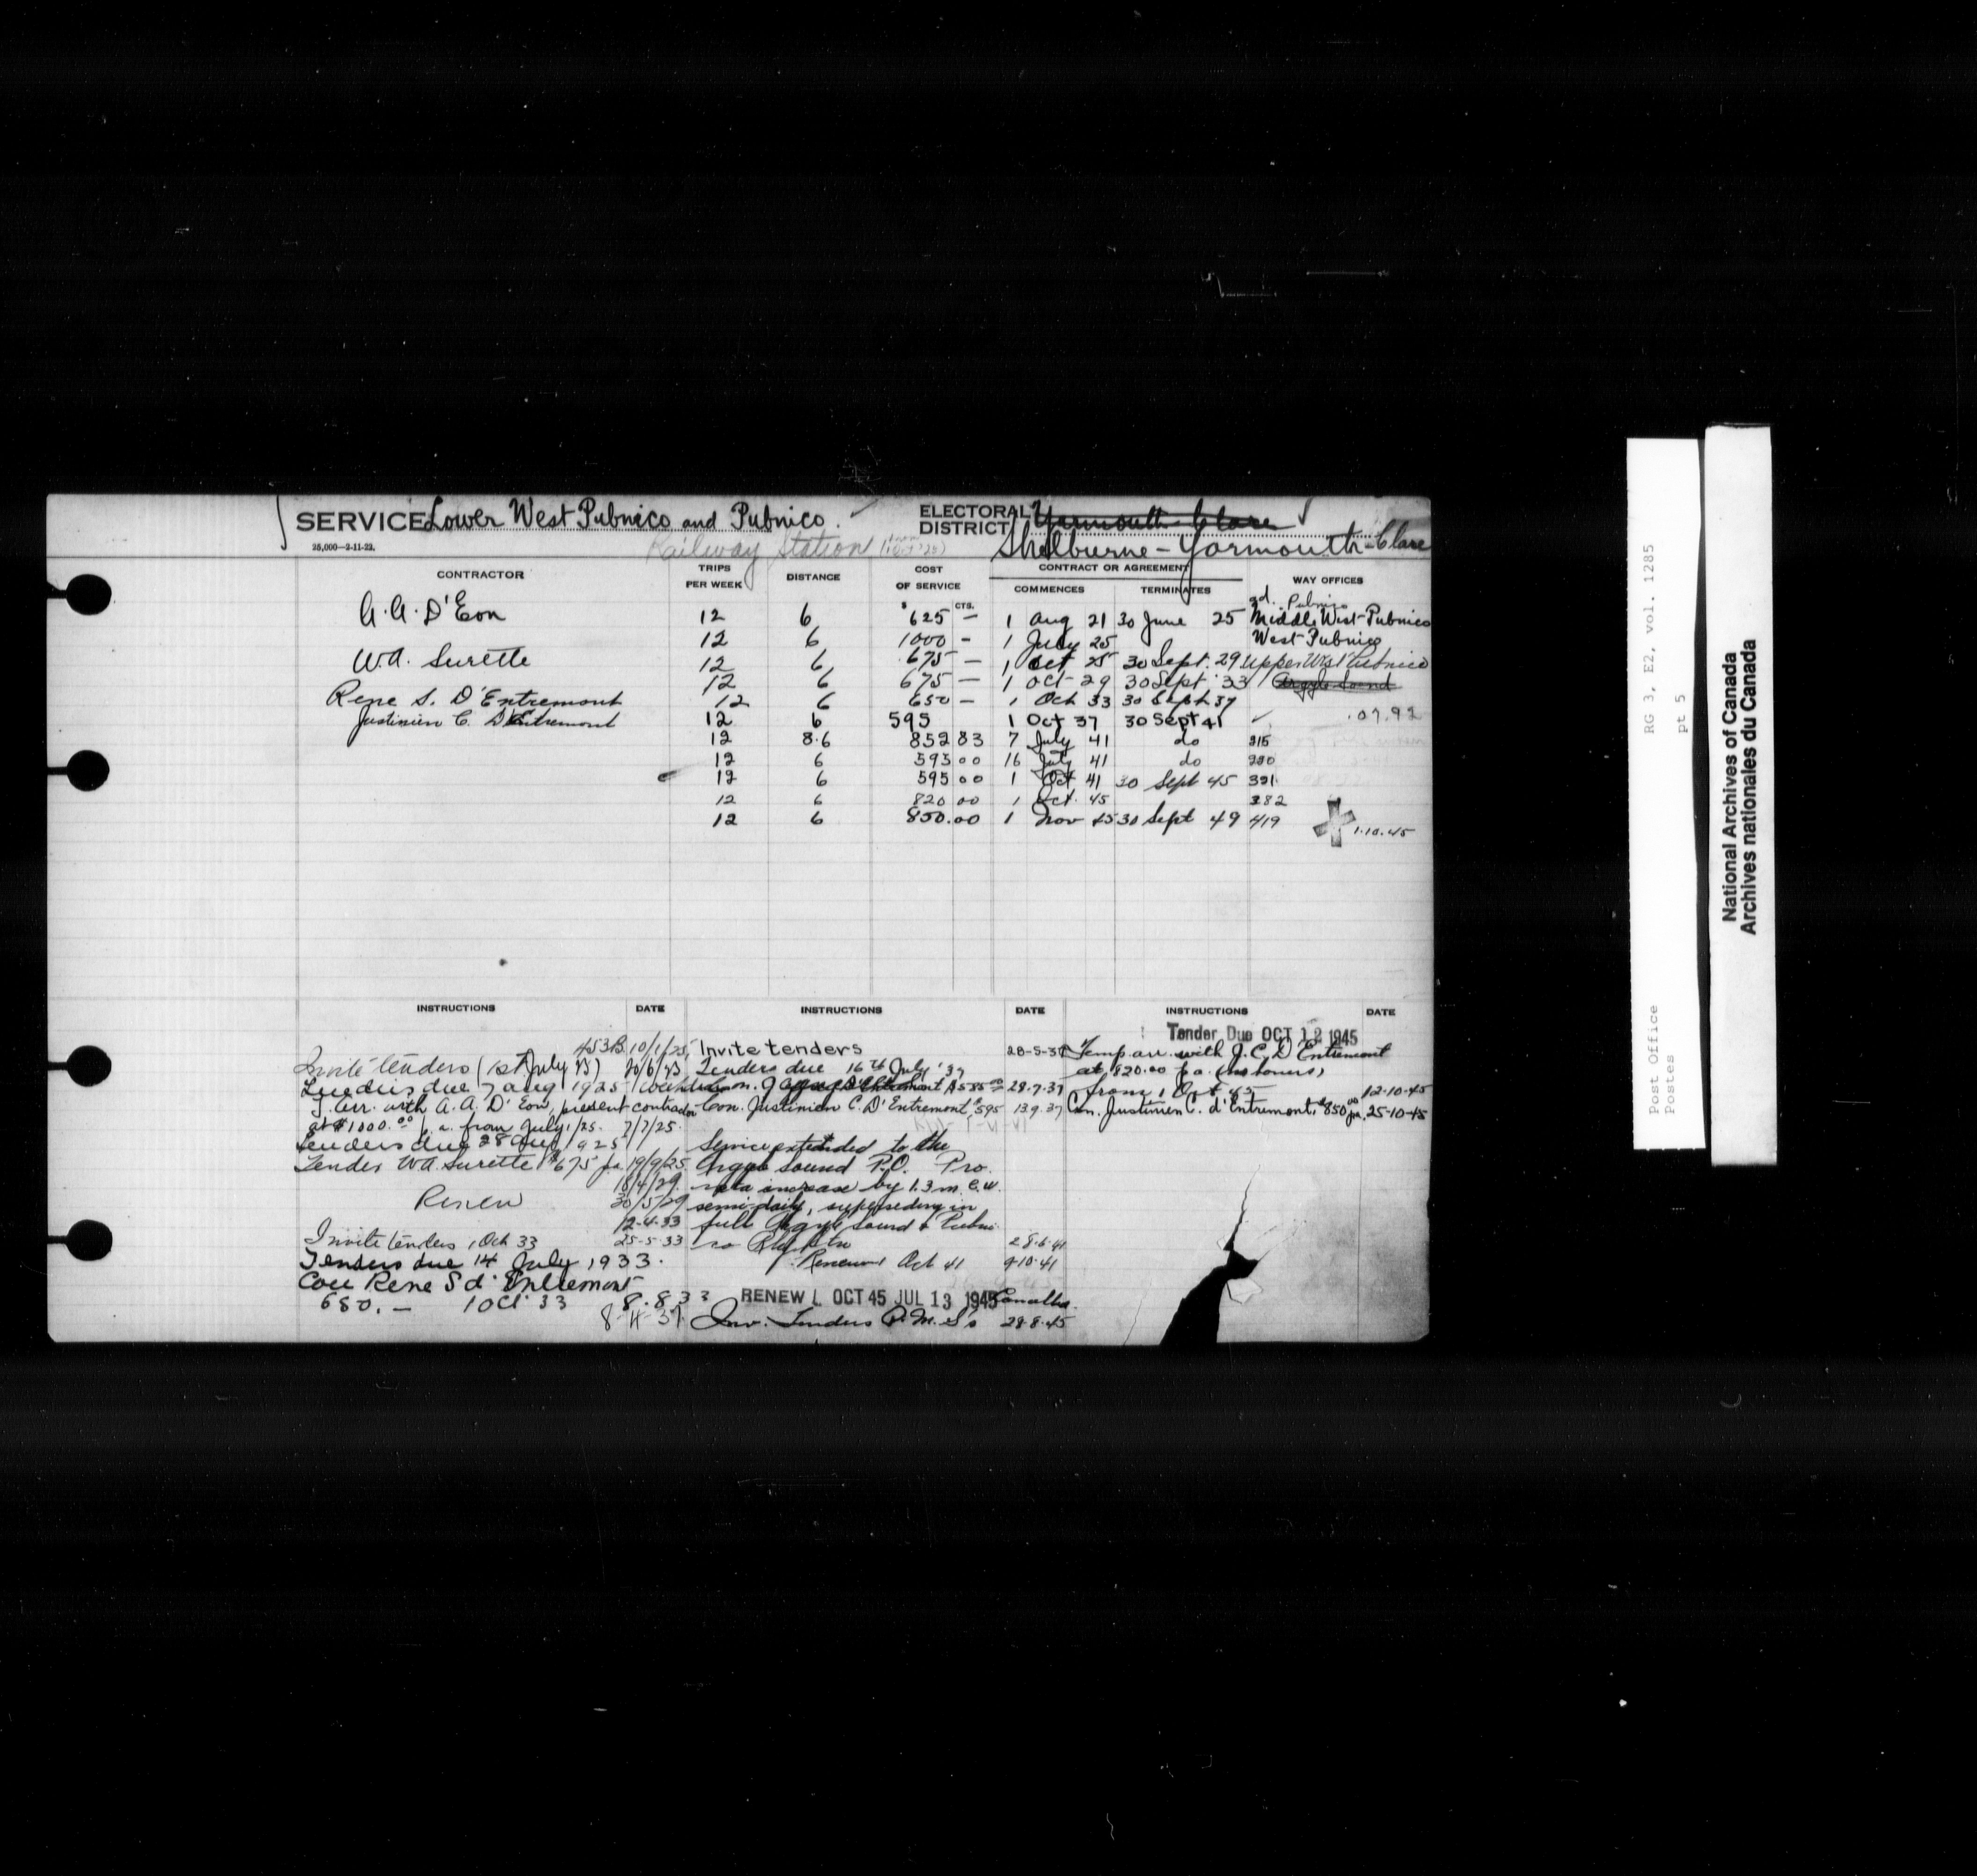 SERVICE Lower West Pubnico and Pubnico
ELECTORAL DISTRICT Yarmouth-Clare
25,000-2-11-22.
Railway Station
Shelburne-Yarmouth-Clare
CONTRACTOR TRIPS PER WEEK DISTANCE COST OF SERVICE CONTRACT OR AGREEMENT WAY OFFICES
COMMENCES TERMINATES
$ CTS.
Pubnico
A. A. D'Eon 12 6 625 — 1 Aug 21 30 June 25 Middle West Pubnico
12 6 1000 - 1 July 25 West Pubnico
W.A. Surette 12 6 675 — 1 Oct 25 30 Sept. 29 Upper West Pubnico
12 6 675 — 1 Oct 29 30 Sept 33 Argyle Sound
Rene S. D'Entremont 12 6 650 — 1 Oct 33 30 Sept 37
Justinien C. D'Entremont 12 6 595 1 Oct 37 30 Sept 41 .07.92
12 8.6 852 83 7 July 41 do 315
12 6 595 00 16 July 41 do
12 6 595 00 1 Oct 41 30 Sept 45 391
12 6 820 00 1 Oct. 45 382
12 6 850.00 1 Nov 45 30 Sept 49 419
1.10.45
INSTRUCTIONS DATE INSTRUCTIONS DATE INSTRUCTIONS DATE
453B 10/1/25
Invite tenders (1st July 25)
Tenders due 7 Aug 1925
T. arr. with A. A. D'Eon, present contractor
at $1000.00 p.a. from July 1/25. 7/7/25.
Tenders due 28 Aug 1925
Tender W.A. Surette $675 pa 19/9/25
18/4/29.
Renew 30/5/29
12-4-33
Invite tenders 1 Oct 33 25-5-33
Tenders due 14 July 1933.
Con Rene S d'Entremont
650.— 1 Oct 33 8.8.33
8-4-37
Invite tenders 28-5-37
Tenders due 16th July '37
28-7-37
Con. Justinien C. D'Entremont, $595 13.9.37
Service extended to the
Argyle Sound P.O. Pro
rata increase by 1.3 m. e.w.
semi-daily, superseding in
full Argyle Sound & Pubni-
co Rly Stn 28-6-41
Renewed Oct 41 9-10-41
RENEW 1 OCT 45 JUL 13 1945 Cancelled.
Inv. Tenders P.M. S's 28-8-45
Tender Due OCT 12 1945
Temp arr. with J. C. D'Entremont
at $820.00 p.a.
from 1 Oct 45 12-10-45
Con. Justinien C. d'Entremont, $850.00 pa. 25-10-45
Post Office RG 3, E2, vol. 1285
Postes pt 5
National Archives of Canada
Archives nationales du Canada